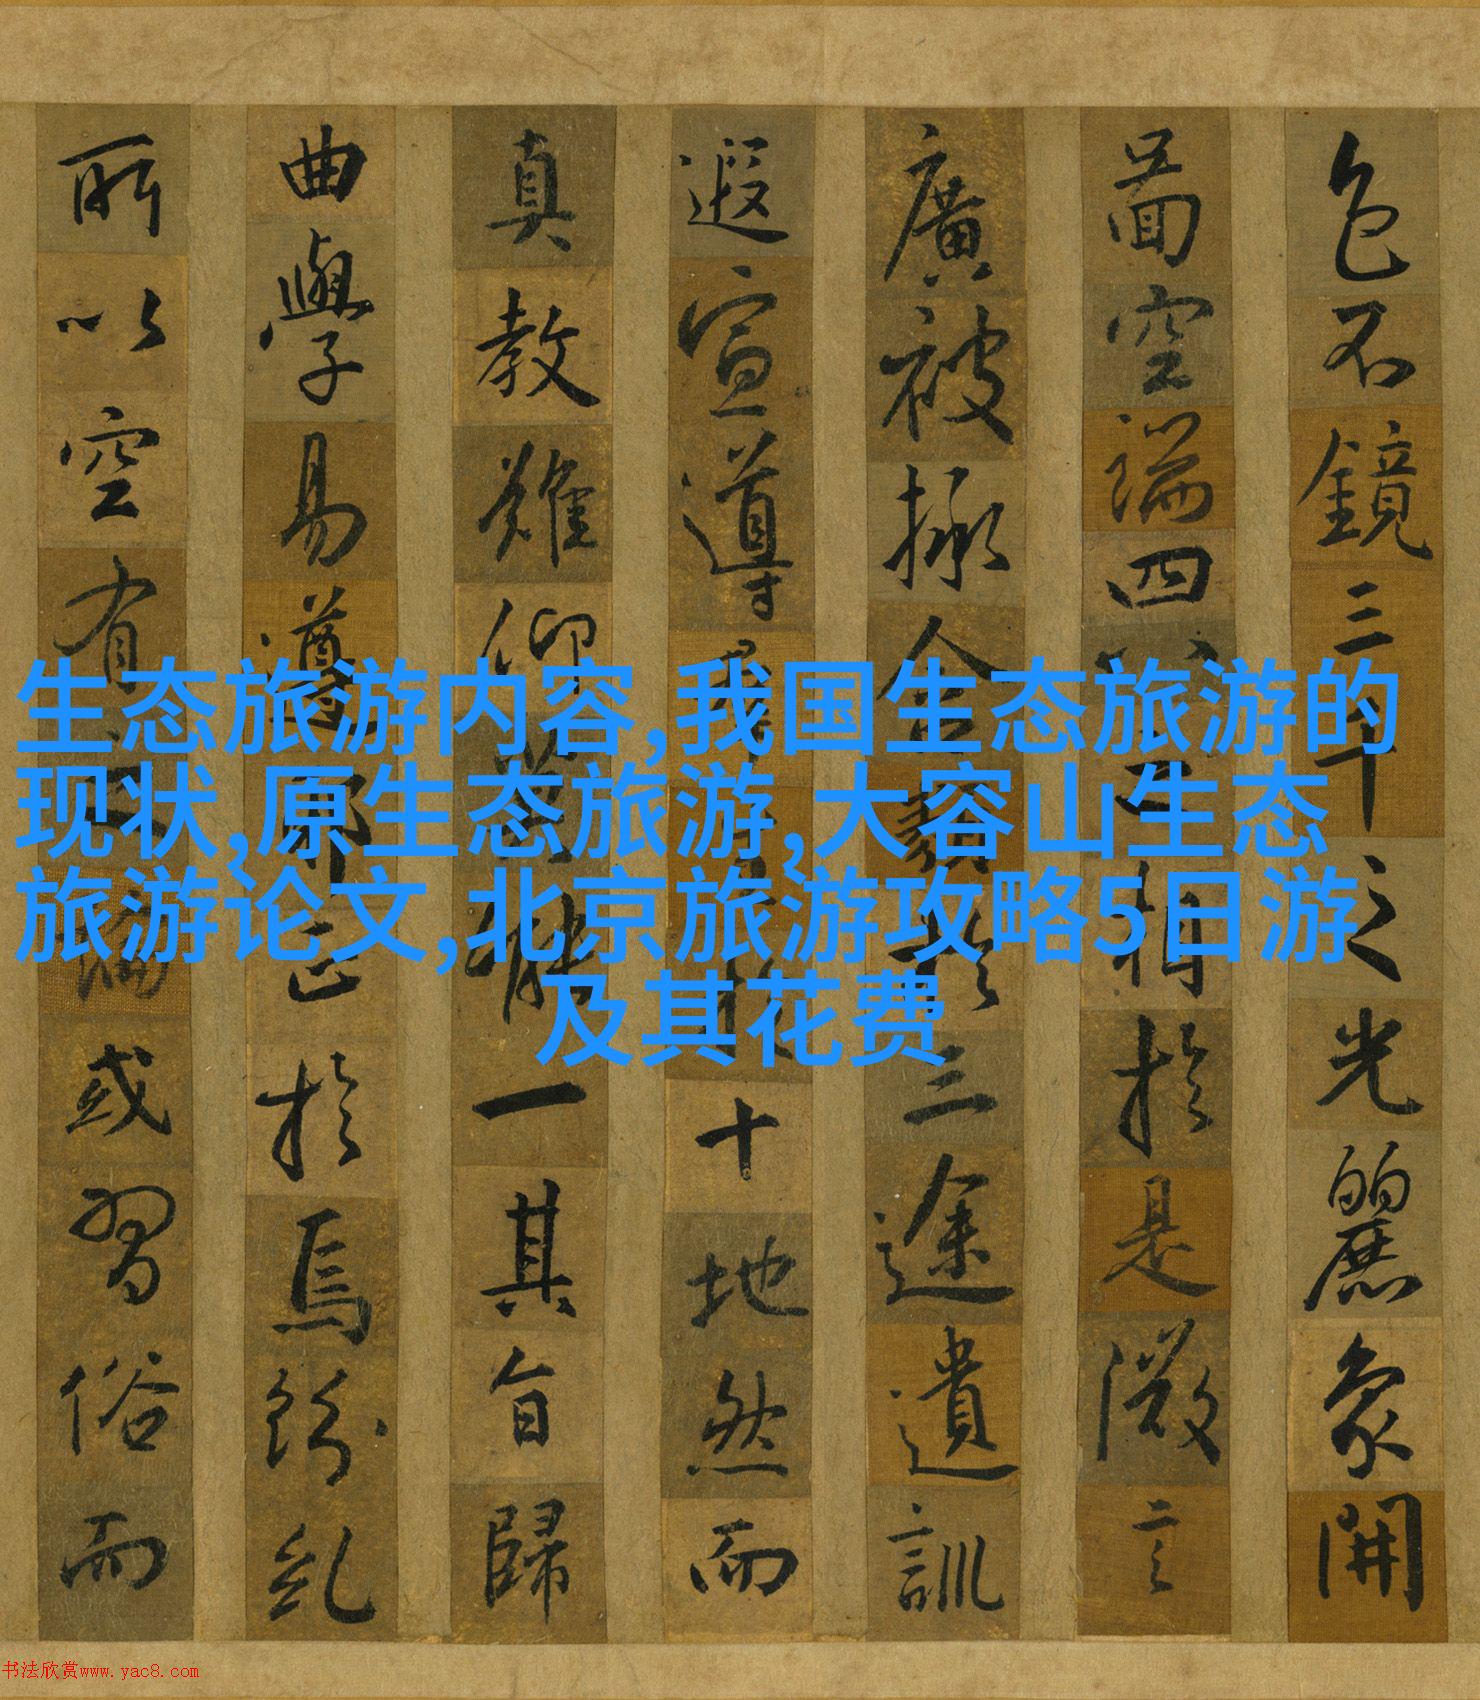 色不鏡三千之光麗象開
啚空端四八之相於是微言
廣被拯含類於三途遺訓
遐宣導群生於十地然而
真教難仰莫能一其旨歸
曲學易遵邪正於焉紛糺
所以空有之論或習俗而
生态旅游内容,我国生态旅游的
现状,原生态旅游,大容山生态
旅游论文,北京旅游攻略5日游
及其花费
书法欣赏www.yac8.com